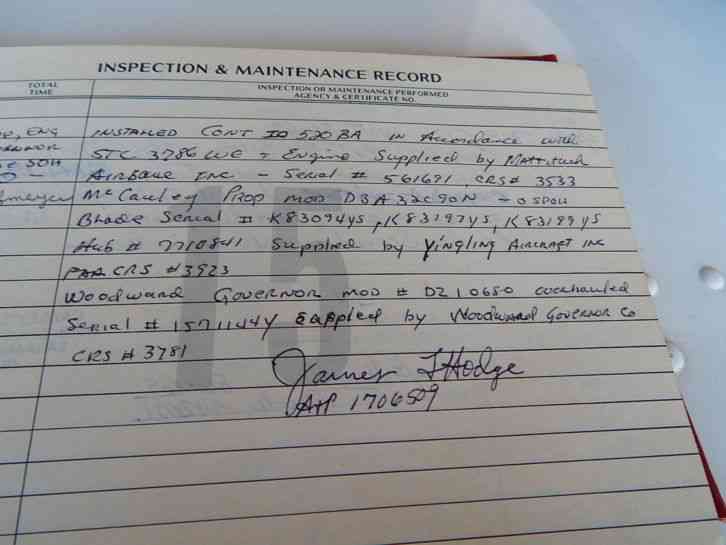 INSPECTION & MAINTENANCE RECORD
TOTAL TIME
INSPECTION OR MAINTENANCE PERFORMED
AGENCY & CERTIFICATE NO.
ENG INSTALLED CONT IO 520 BA IN Accordance with
STC 3786 WE - Engine Supplied by Mattituck
SOH
AIRBASE INC - Serial # 561691, CRS# 3533
McCauley Prop MOD D3A32C90N - 0 SPOH
Blade Serial # K83094YS, K83197YS, K83199YS
Hub # 7710841 Supplied by Yingling Aircraft INC
FAA CRS #3923
Woodward Governor MOD # D210680 overhauled
Serial # 1571144Y Supplied by Woodward Governor Co
CRS # 3781
15
James F Hodge
A+P 1706509